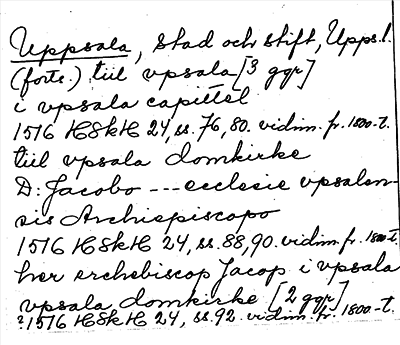 Uppsala, stad och stift, Upps. l.
(forts.) tiil vpsala [3 ggr]
i vpsala capittel
1516 HSkH 24, ss. 76, 80. vidim. fr. 1800-t.
tiil vpsala domkirke
D: Jacobo --- ecclesie vpsalen-
sis Archiepiscopo
1516 HSkH 24, ss. 88, 90. vidim. fr. 1800-t.
her erchebiscop Jacop i vpsala
vpsala domkirke [2 ggr]
?1516 HSkH 24, ss. 92. vidim. fr. 1800-t.